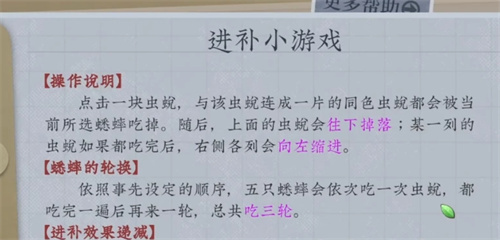 更多帮助
进补小游戏
【操作说明】
点击一块虫蜕，与该虫蜕连成一片的同色虫蜕都会被当
前所选蟋蟀吃掉。随后，上面的虫蜕会往下掉落；某一列的
虫蜕如果都吃完后，右侧各列会向左缩进。
【蟋蟀的轮换】
依照事先设定的顺序，五只蟋蟀会依次吃一次虫蜕，都
吃完一遍后再来一轮，总共吃三轮。
【进补效果递减】